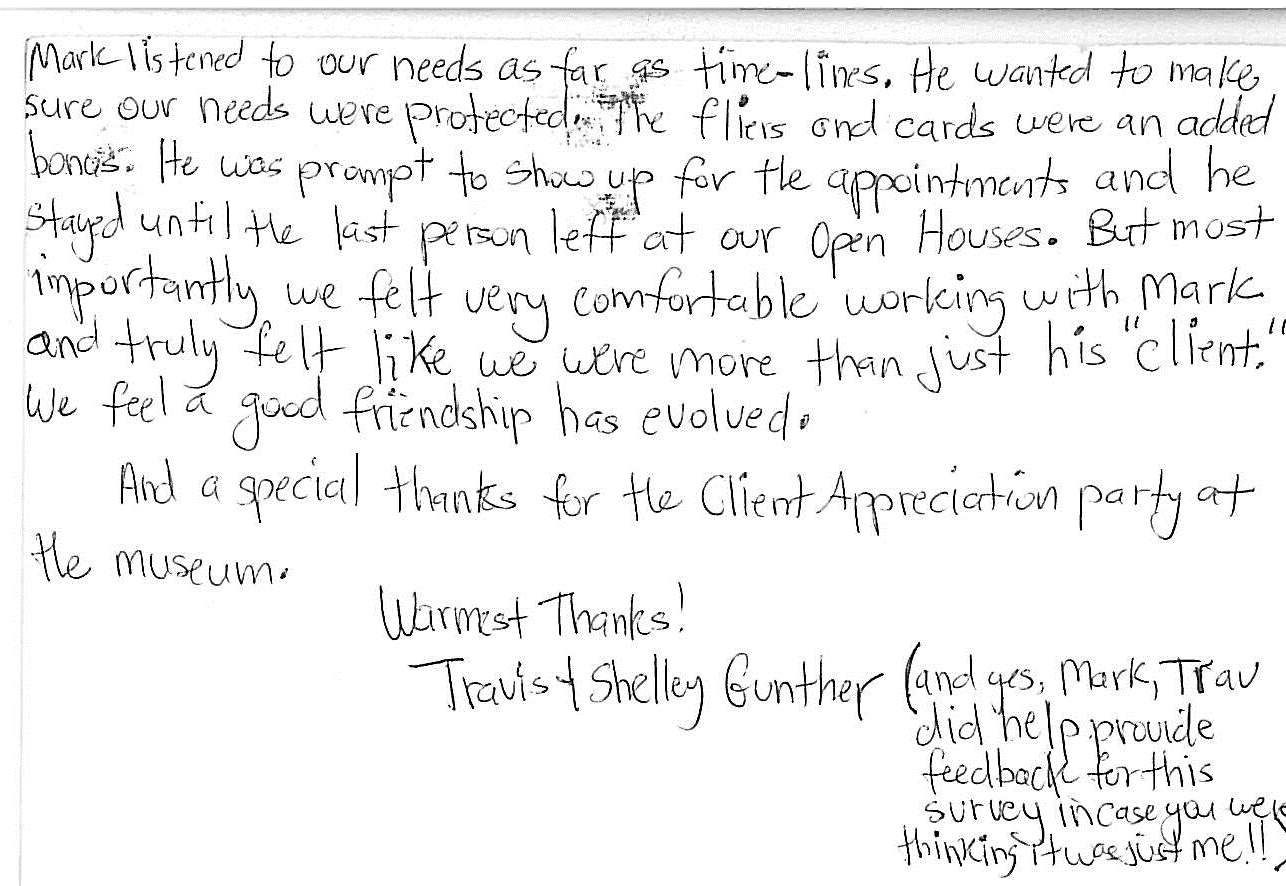 Mark listened to our needs as far as time-lines. He wanted to make
sure our needs were protected. The fliers and cards were an added
bonus. He was prompt to show up for the appointments and he
stayed until the last person left at our Open Houses. But most
importantly we felt very comfortable working with Mark
and truly felt like we were more than just his "client."
We feel a good friendship has evolved.
And a special thanks for the Client Appreciation party at
the museum.
Warmest Thanks!
Travis & Shelley Gunther (and yes, Mark, Trav
did help provide
feedback for this
survey in case you were
thinking it was just me!!)